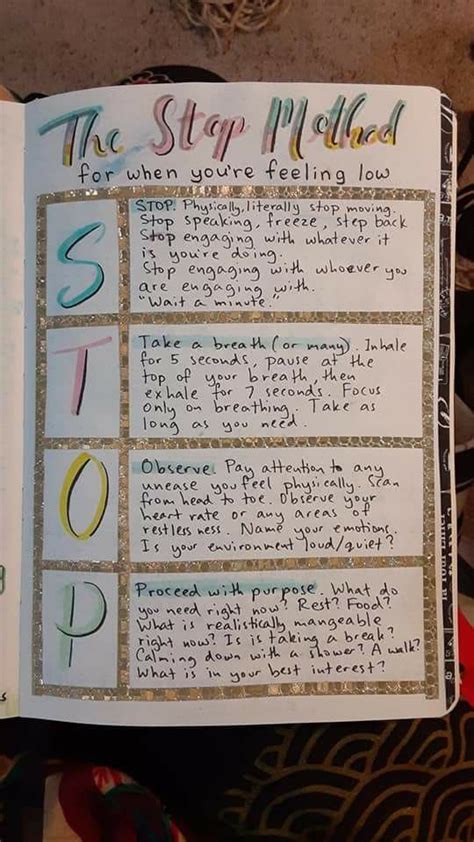 The Stop Method
for when you're feeling low
S
STOP. Physically, literally stop moving.
Stop speaking, freeze, step back
Stop engaging with whatever it
is you're doing.
Stop engaging with whoever you
are engaging with.
"Wait a minute."
T
Take a breath (or many). Inhale
for 5 seconds, pause at the
top of your breath, then
exhale for 7 seconds. Focus
only on breathing. Take as
long as you need.
O
Observe. Pay attention to any
unease you feel physically. Scan
from head to toe. Observe your
heart rate or any areas of
restlessness. Name your emotions.
Is your environment loud/quiet?
P
Proceed with purpose. What do
you need right now? Rest? Food?
What is realistically mangeable
right now? Is is taking a break?
Calming down with a shower? A walk?
What is in your best interest?